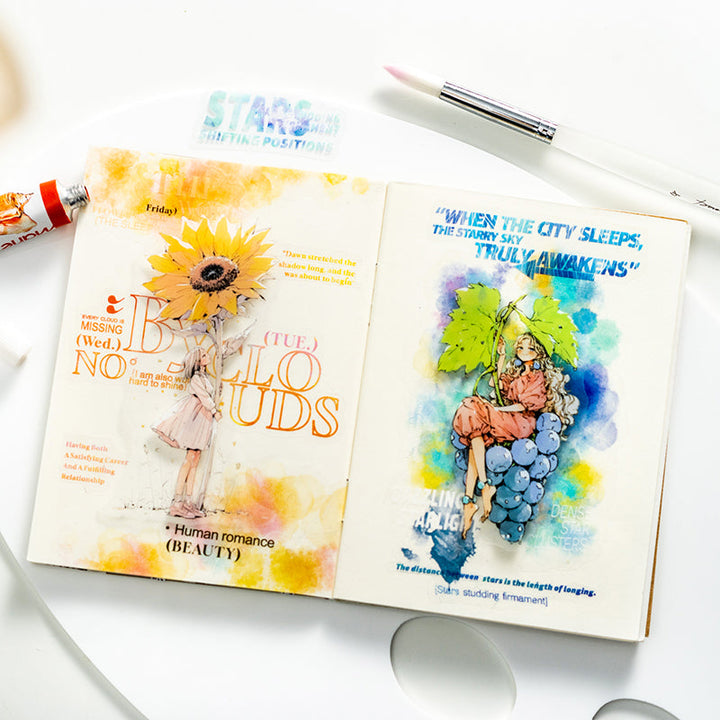 STARS
SHIFTING POSITIONS
Friday)
(THE SLEEP
"Dawn stretched the
shadow long, and she
was about to begin"
EVERY CLOUD IS
MISSING
(Wed.)
NO.
(TUE.)
CLO
UDS
I am also wo
hard to shine
Having Both
A Satisfying Career
And A Fulfilling
Relationship
• Human romance
(BEAUTY)
"WHEN THE CITY SLEEPS,
THE STARRY SKY
TRULY AWAKENS"
DENSE
STAR
CLUSTERS
The distance between stars is the length of longing.
[Stars studding firmament]